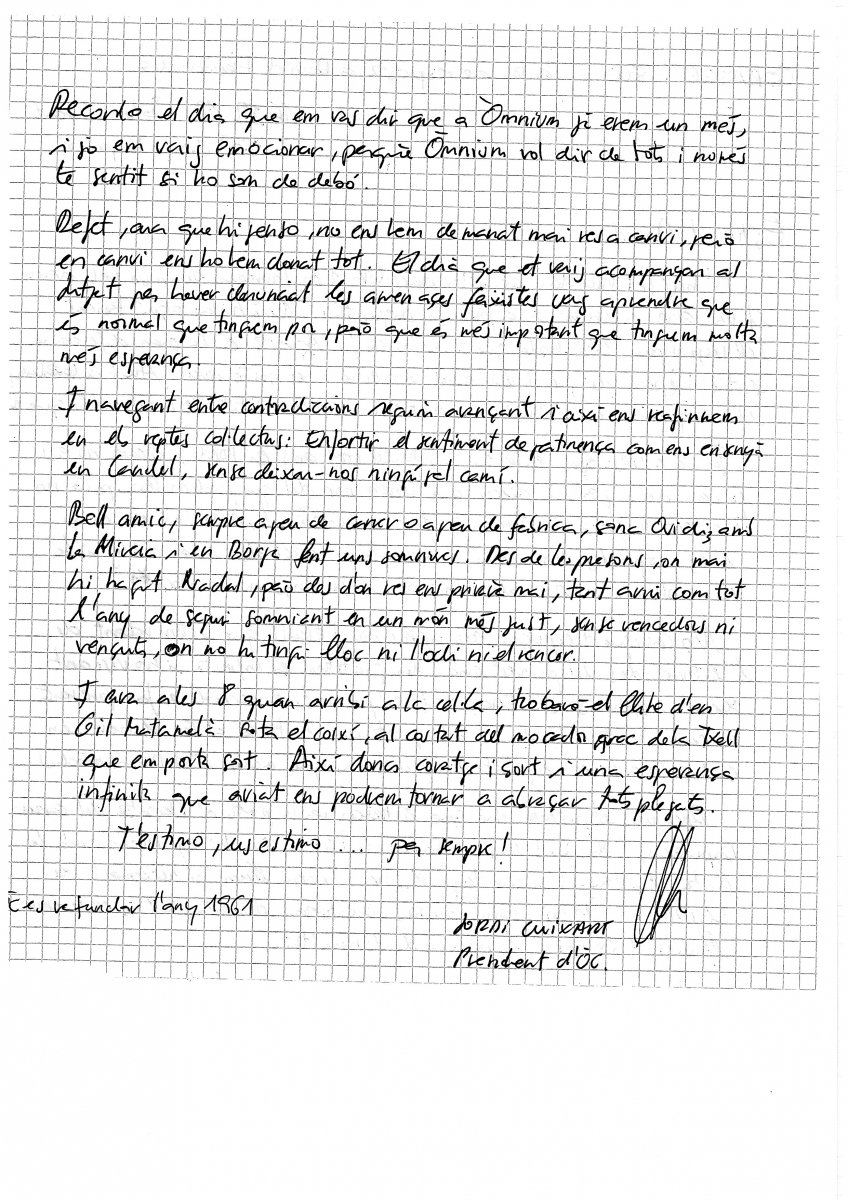 Recordo el dia que em vas dir que a Òmnium ja erem un més,
i jo em vaig emocionar, perquè Òmnium vol dir de tots i només
té sentit si ho som de debó.
De fet, ara que hi penso, no ens hem demanat mai res a canvi, però
en canvi ens ho hem donat tot. El dia que et vaig acompanyar al
jutjat per haver denunciat les amenaces feixistes vaig aprendre que
és normal que tinguem por, però que és més important que tinguem molta
més esperança.
I navegant entre contradiccions seguim avançant i així ens reafirmem
en els reptes col·lectius: Enfortir el sentiment de pertinença com ens ensenyà
en Candel, sense deixar-nos ningú pel camí.
Bell amic, sempre a peu de carrer o a peu de fàbrica, amb
la Mireia i en Borja fent uns somriures. Des de les presons, on mai
hi ha gut Nadal, però des d'on res ens privarà mai, tant avui com tot
l'any de seguir somniant en un món més just, sense vencedors ni
vençuts, on no hi tingui lloc ni l'odi ni el rencor.
I ara a les 8 quan arribi a la cel·la, trobaré el llibre d'en
Gil Matamala sota el coixí, al costat del mocador groc de la Txell
que em porta sort. Així doncs coratge i sort i una esperança
infinita que aviat ens podrem tornar a abraçar tots plegats.
T'estimo, us estimo ... per sempre!
es va fundar l'any 1961
JORDI CUIXART
President d'ÒC.